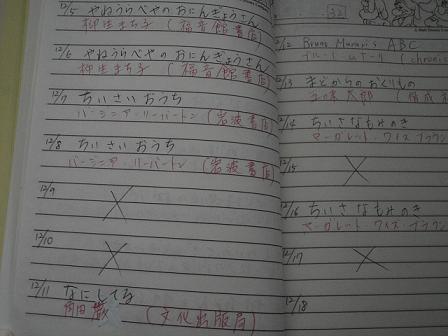 12/5 やねうらべやのおにんぎょうさん
柳生まち子 (福音館書店)
12/6 やねうらべやのおにんぎょうさん
柳生まち子 (福音館書店)
12/7 ちいさいおうち
バージニア・リー・バートン (岩波書店)
12/8 ちいさいおうち
バージニア・リー・バートン (岩波書店)
12/9
12/10
12/11 なにしてる
(文化出版局)
12/12 Bruno Munari's ABC
12/13 まどからのおくりもの
五味太郎 (偕成
12/14 ちいさなもみのき
マーガレット・ワイズ・ブラウン
12/15
12/16 ちいさなもみのき
マーガレット・ワイズ・ブラウン
12/17
12/18